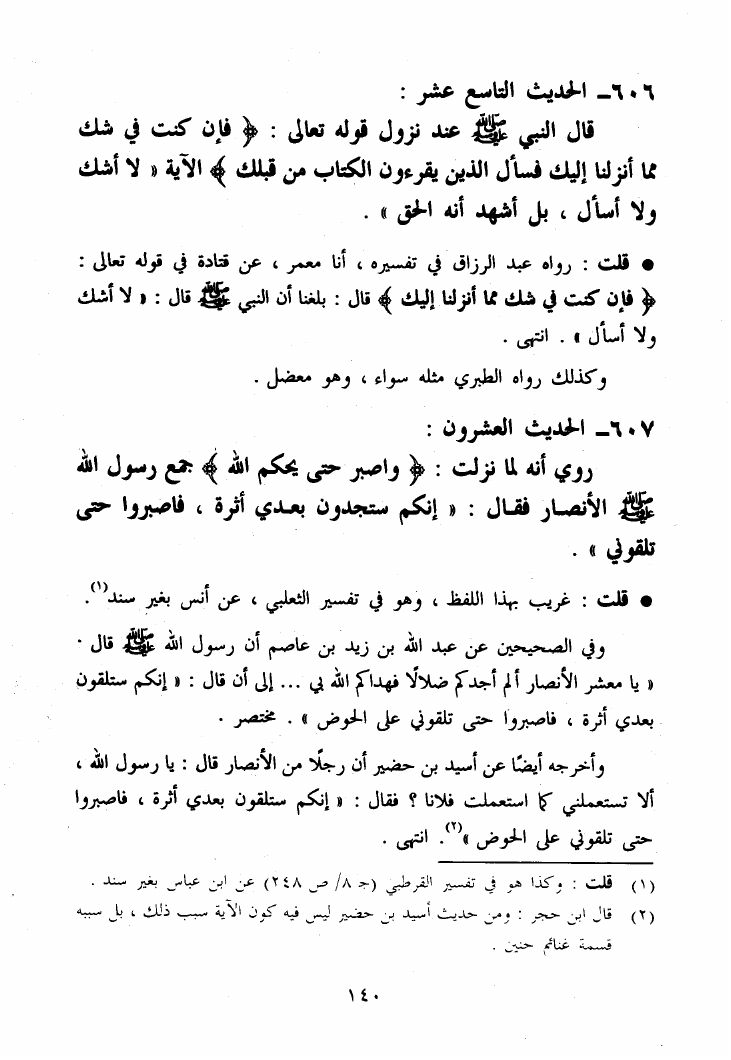 ٦٠٦ـ الحديث التاسع عشر :
قال النبي ﷺ عند نزول قوله تعالى : ﴿ فإن كنت في شك
مما أنزلنا إليك فسأل الذين يقرءون الكتاب من قبلك ﴾ الآية « لا أشك
ولا أسأل ، بل أشهد أنه الحق » .
● قلت : رواه عبد الرزاق في تفسيره ، أنا معمر ، عن قتادة في قوله تعالى :
﴿ فإن كنت في شك مما أنزلنا إليك ﴾ قال : بلغنا أن النبي ﷺ قال : « لا أشك
ولا أسأل » . انتهى .
وكذلك رواه الطبري مثله سواء ، وهو معضل .
٦٠٧ـ الحديث العشرون :
روي أنه لما نزلت : ﴿ واصبر حتى يحكم الله ﴾ جمع رسول الله
ﷺ الأنصار فقال : « إنكم ستجدون بعدي أثرة ، فاصبروا حتى
تلقوني » .
● قلت : غريب بهذا اللفظ ، وهو في تفسير الثعلبي ، عن أنس بغير سند(١).
وفي الصحيحين عن عبد الله بن زيد بن عاصم أن رسول الله ﷺ قال ·
« يا معشر الأنصار ألم أجدكم ضلالًا فهداكم الله بي ... إلى أن قال : « إنكم ستلقون
بعدي أثرة ، فاصبروا حتى تلقوني على الحوض » . مختصر .
وأخرجه أيضًا عن أسيد بن حضير أن رجلًا من الأنصار قال : يا رسول الله ،
ألا تستعملني كما استعملت فلانا ؟ فقال : « إنكم ستلقون بعدي أثرة ، فاصبروا
حتى تلقوني على الحوض »(٢). انتهى .
(١) قلت : وكذا هو في تفسير القرطبي (جـ ٨/ ص ٢٤٨) عن ابن عباس بغير سند .
(٢) قال ابن حجر : ومن حديث أسيد بن حضير ليس فيه كون الآية سبب ذلك ، بل سببه
قسمة غنائم حنين .
١٤٠